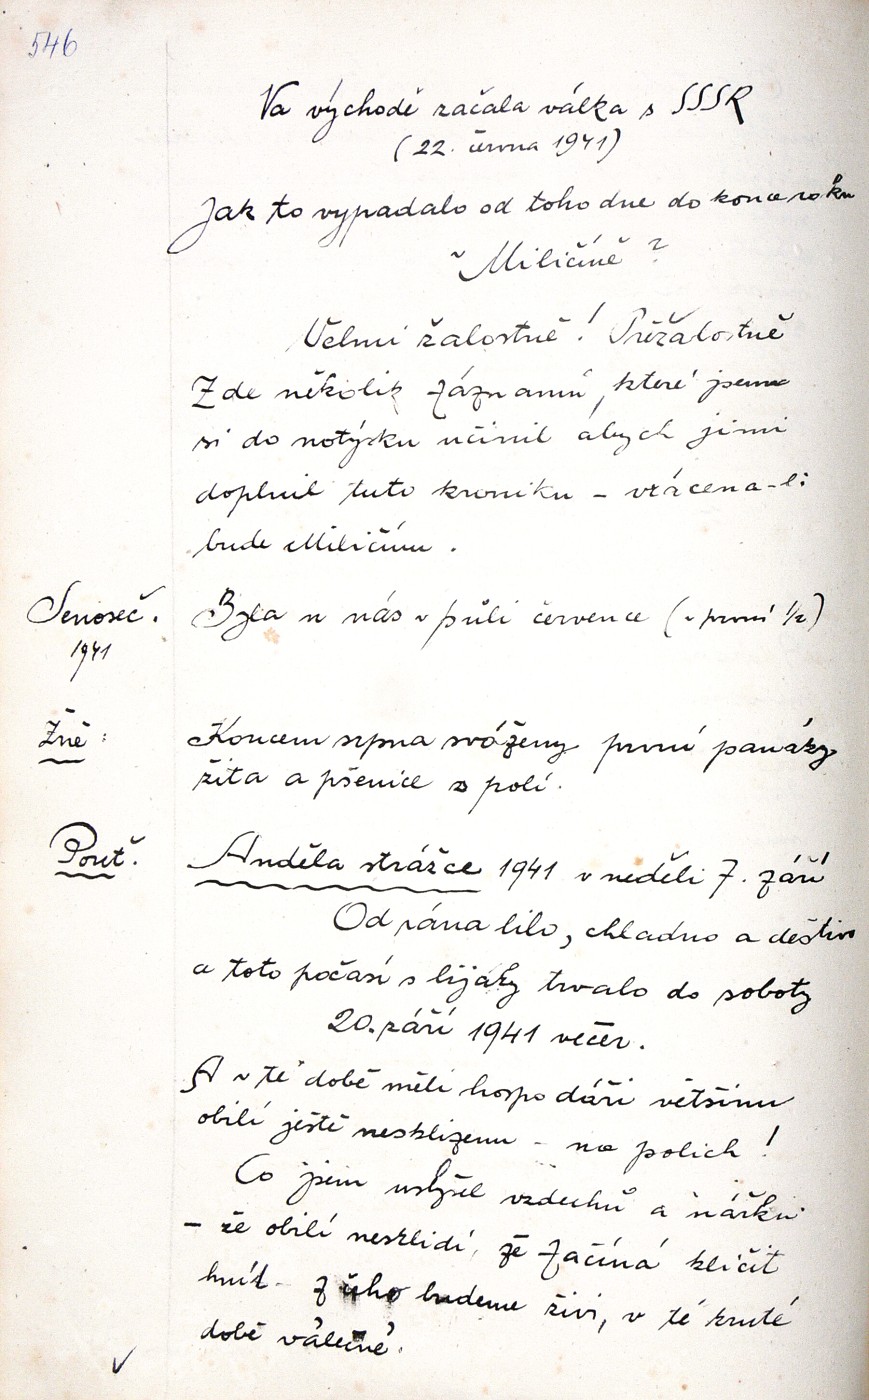 546
Na východě začala válka s SSSR
(22. června 1941)
Jak to vypadalo od toho dne do konce roku
v Miličíně?
Velmi žalostně! Přežalostně
Zde několik záznamů, které jsem
si do notýsku učinil abych jimi
doplnil tuto kroniku – vrácena-li
bude Miličínu.
Senoseč. Byla u nás v půli července (v první 1/2)
1941
Žně: Koncem srpna sváženy první panáky
žita a pšenice z polí.
Pouť. Anděla strážce 1941 v neděli 7. září
Od rána lilo, chladno a deštivo
a toto počasí s lijáky trvalo do soboty
20. září 1941 večer.
A v té době měli hospodáři většinu
obilí ještě nesklizenu – na polích!
Co jsem uslyšel vzdechů a nářků
– že obilí nesklidí, že začíná klíčit
hnít – z čeho budeme živi, v té kruté
době válečné.